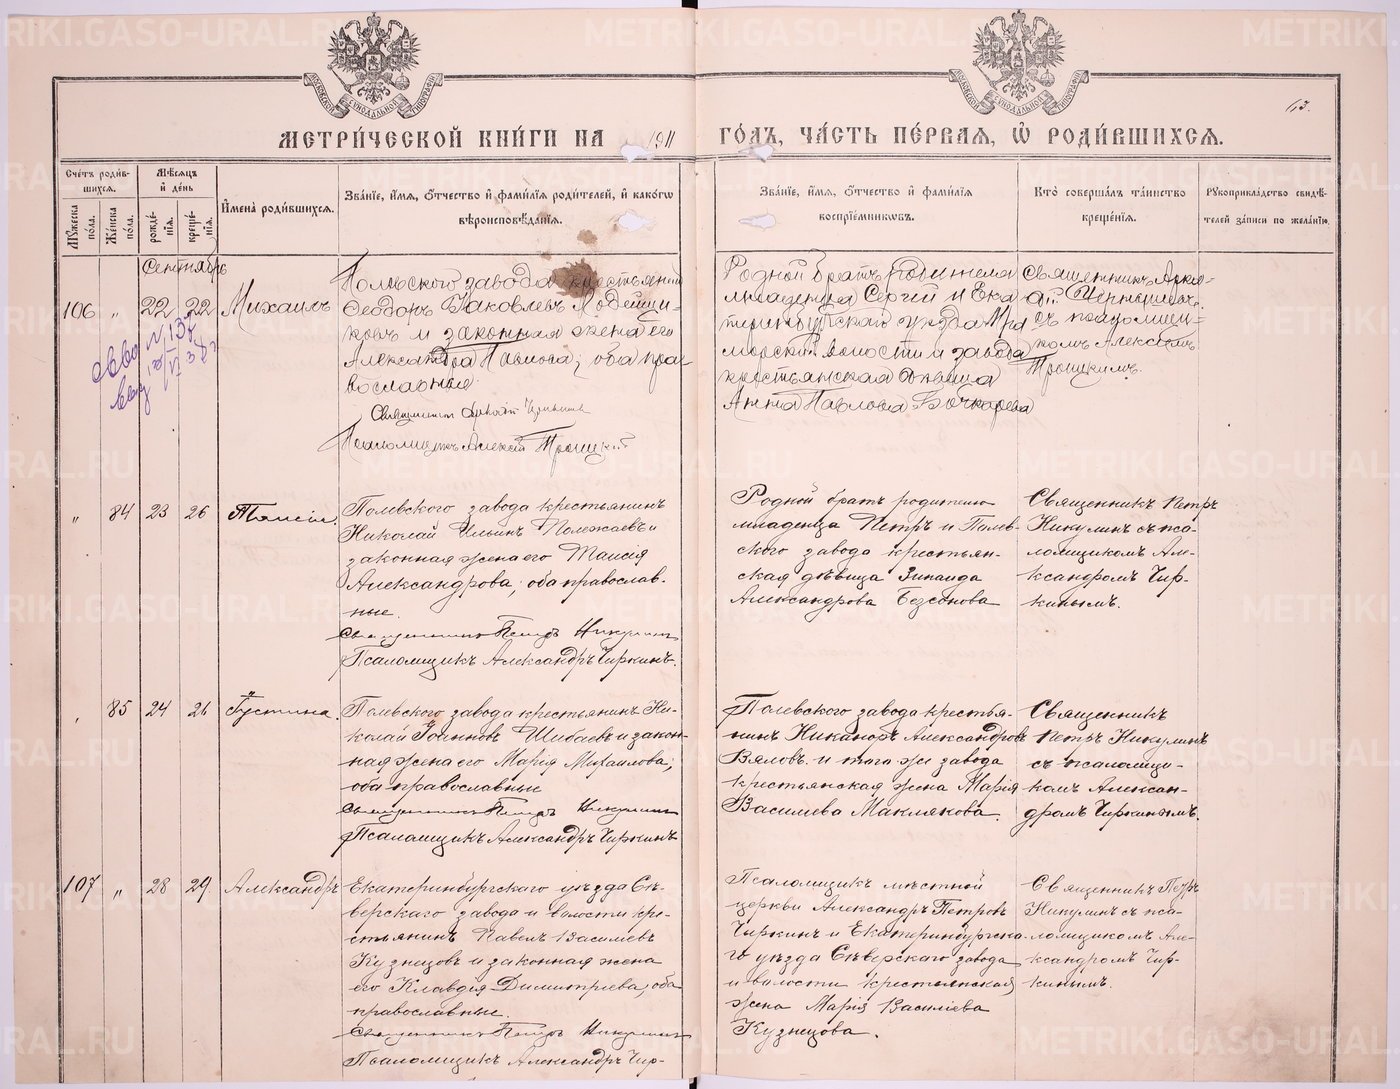 МЕТРИ́ЧЕСКОЙ КНИ́ГИ НА 1911 ГО́ДЪ, ЧА́СТЬ ПЕ́РВАЯ, Ѽ РОДИ́ВШИХСЯ.
63.
Сче́тъ роди́вшихся.
Му́жеска по́ла.
Же́нска по́ла.
Мѣ́сяцъ и҆ де́нь
рожде́нїя.
креще́нїя.
И҆мена̀ роди́вшихся.
Зва́нїе, и҆́мя, ѻ҆́тчество и҆ фами́лїя роди́телей, и҆ како́гѡ
вѣроисповѣ́данїя.
Зва́нїе, и҆́мя, ѻ҆́тчество и҆ фами́лїя
воспрїе́мникѡвъ.
Кто̀ соверша́лъ та́инство
креще́нїя.
Рꙋкоприкла́дство свидѣ́-
телей за́писи по жела́нїю.
Сентябрь
106 „ 22 22 Михаилъ
Полевского завода крестьянин
Ѳеодоръ Яковлевъ
ковъ и законная жена его
Александра Павлова; оба пра-
вославные
Священник Аркадий
Псаломщикъ Алексѣй Троицкий
Родной братъ родителя
младенца Сергѣй и Ека
теринбургскаго уѣзда Мра
морской волости и завода
крестьянская дѣвица
Анна Павлова Бочкарева
Священникъ Арка-
дій
съ псаломщи-
комъ Алексѣемъ
Троицкимъ.
„ 84 23 26 Таисія.
Полевского завода крестьянинъ
Николай Ильинъ Полежаевъ и
законная жена его Таисія
Александрова; оба православ-
ные.
Священникъ Петръ Никулинъ
Псаломщикъ Александръ Чиркинъ.
Родной братъ родителю
младенца Петръ и Полев-
ского завода крестьян-
ская дѣвица Зинаида
Александрова Безсонова
Священникъ Петръ
Никулинъ съ пса-
ломщикомъ Але-
ксандромъ Чир-
кинымъ.
„ 85 24 26 Іустина.
Полевского завода крестьянинъ Ни-
колай Іоанновъ Шибаевъ и закон-
ная жена его Марія Михаилова;
оба православные
Священникъ Петръ Никулинъ
Псаломщикъ Александръ Чиркинъ
Полевского завода крестья-
нинъ Никаноръ Александровъ
Вяловъ и того же завода
крестьянская жена Марія
Василиева Маклякова.
Священникъ
Петръ Никулинъ
съ псаломщи-
комъ Алексан-
дромъ Чиркинымъ.
107 „ 28 29. Александръ
Екатеринбургскаго уѣзда Сѣ-
верскаго завода и волости кре-
стьянинъ Павелъ Василіевъ
Кузнецовъ и законная жена
его Клавдія Димитріева; оба
православные.
Священникъ Петръ Никулинъ
Псаломщикъ Александръ Чир-
Псаломщикъ мѣстной
церкви Александръ Петровъ
Чиркинъ и Екатеринбургска-
го уѣзда Сѣверскаго завода
и волости крестьянская
жена Марія Василіева
Кузнецова.
Священникъ Петръ
Никулинъ съ пса-
ломщикомъ Але-
ксандромъ Чир-
кинымъ.
METRIKI.GASO-URAL.RU